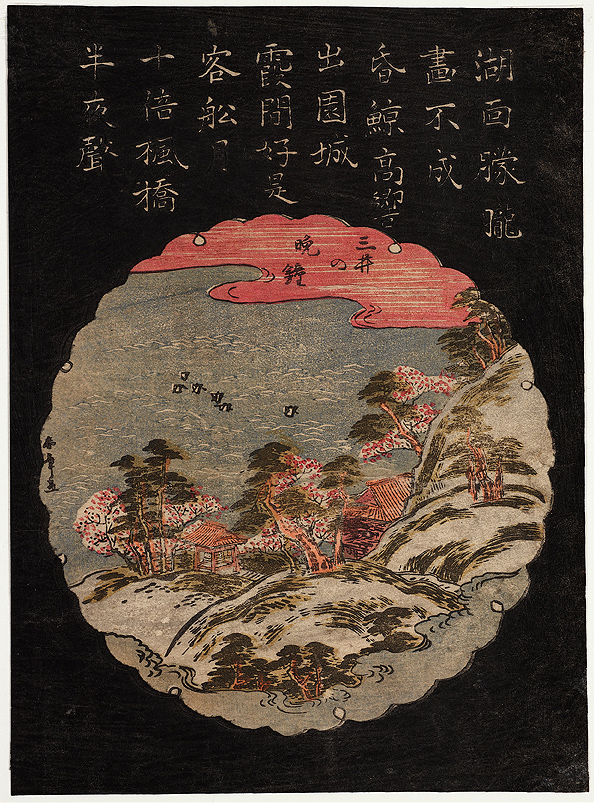 湖面朦朧
畫不成
昏鯨高響
出園城
霞間好是
客舩月
十倍楓橋
半夜聲
三井
の
晩鐘
春章画